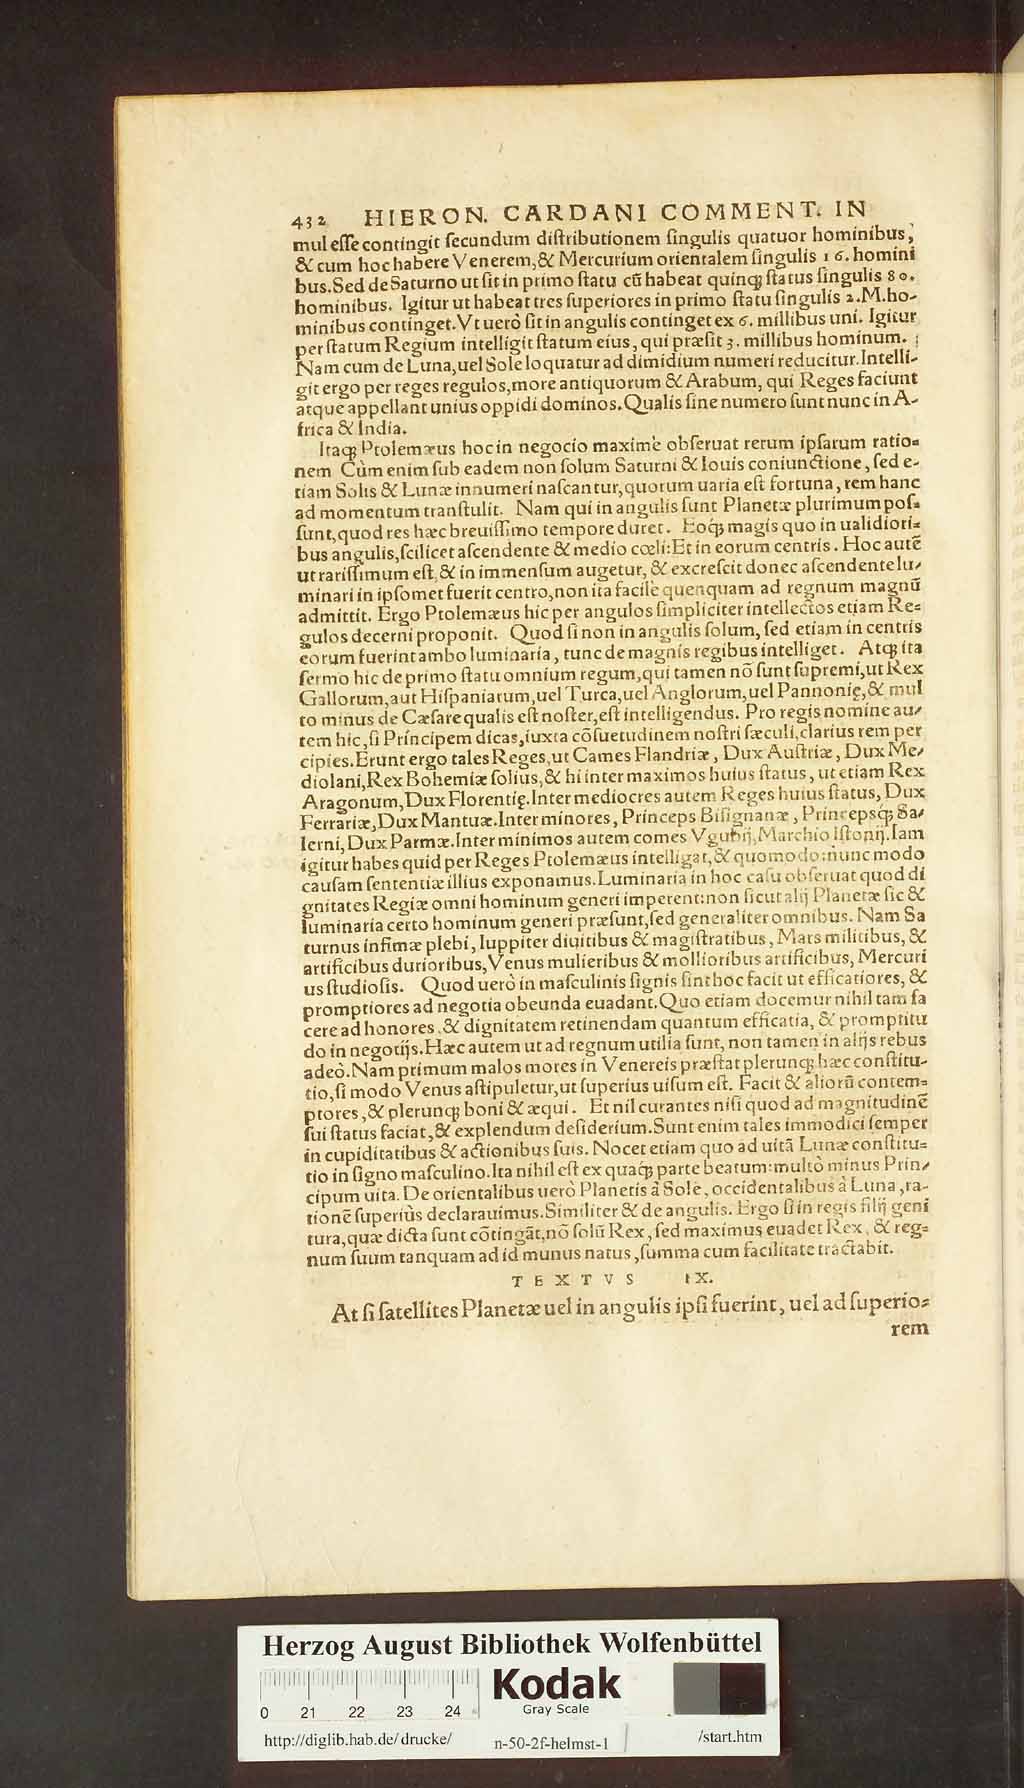 432 HIERON. CARDANI COMMENT. IN
mul esse contingit secundum distributionem singulis quatuor hominibus,
& cum hoc habere Venerem, & Mercurium orientalem singulis 16. homini
bus. Sed de Saturno ut sit in primo statu cũ habeat quinqȝ status singulis 80.
hominibus. Igitur ut habeat tres superiores in primo statu singulis 2. M. ho-
minibus continget. Vt uerò sit in angulis continget ex 6. millibus uni. Igitur
per statum Regium intelligit statum eius, qui præsit 3. millibus hominum.
Nam cum de Luna, uel Sole loquatur ad dimidium numeri reducitur. Intelli-
git ergo per reges regulos, more antiquorum & Arabum, qui Reges faciunt
atque appellant unius oppidi dominos. Qualis sine numero sunt nunc in A-
frica & India.
Itaqȝ Ptolemæus hoc in negocio maximè obseruat rerum ipsarum ratio=
nem Cùm enim sub eadem non solum Saturni & Iouis coniunctione, sed e-
tiam Solis & Lunæ innumeri nascantur, quorum uaria est fortuna, rem hanc
ad momentum transtulit. Nam qui in angulis sunt Planetæ plurimum pos=
sunt, quod res hæc breuissimo tempore duret. Eoqȝ magis quo in ualidiori=
bus angulis, scilicet ascendente & medio cœli: Et in eorum centris. Hoc autẽ
ut rarissimum est, & in immensum augetur, & excrescit donec ascendente lu-
minari in ipsomet fuerit centro, non ita facilè quenquam ad regnum magnũ
admittit. Ergo Ptolemæus hic per angulos simpliciter intellectos etiam Re=
gulos decerni proponit. Quod si non in angulis solum, sed etiam in centris
eorum fuerint ambo luminaria, tunc de magnis regibus intelliget. Atqȝ ita
sermo hic de primo statu omnium regum, qui tamen nõ sunt supremi, ut Rex
Gallorum, aut Hispaniarum, uel Turca, uel Anglorum, uel Pannonię, & mul
to minus de Cæsare qualis est noster, est intelligendus. Pro regis nomine au-
tem hic, si Principem dicas, iuxta cõsuetudinem nostri sæculi, clarius rem per
cipies. Erunt ergo tales Reges, ut Cames Flandriæ, Dux Austriæ, Dux Me-
diolani, Rex Bohemiæ solius, & hi inter maximos huius status, ut etiam Rex
Aragonum, Dux Florentię. Inter mediocres autem Reges huius status, Dux
Ferrariæ, Dux Mantuæ. Inter minores, Princeps Bisignanæ, Princepsqȝ Sa-
lerni, Dux Parmæ. Inter minimos autem comes Vgubij, Marchio Istonij. Iam
igitur habes quid per Reges Ptolemæus intelligat, & quomodo: nunc modo
causam sententiæ illius exponamus. Luminaria in hoc casu obseruat quod di
gnitates Regiæ omni hominum generi imperent: non sicut alij Planetæ sic &
luminaria certo hominum generi præsunt, sed generaliter omnibus. Nam Sa
turnus infimæ plebi, Iuppiter diuitibus & magistratibus, Mars militibus, &
artificibus durioribus, Venus mulieribus & mollioribus artificibus, Mercuri
us studiosis. Quod uerò in masculinis signis sint hoc facit ut efficatiores, &
promptiores ad negotia obeunda euadant. Quo etiam docemur nihil tam fa
cere ad honores, & dignitatem retinendam quantum efficatia, & promptitu
do in negotijs. Hæc autem ut ad regnum utilia sunt, non tamen in alijs rebus
adeò. Nam primum malos mores in Venereis præstat plerunqȝ hæc constitu-
tio, si modo Venus astipuletur, ut superius uisum est. Facit & aliorũ contem=
ptores, & plerunqȝ boni & æqui. Et nil curantes nisi quod ad magnitudinẽ
sui status faciat, & explendum desiderium. Sunt enim tales immodici semper
in cupiditatibus & actionibus suis. Nocet etiam quo ad uitã Lunæ constitu=
tio in signo masculino. Ita nihil est ex quaqȝ parte beatum: multò minus Prin-
cipum uita. De orientalibus uerò Planetis à Sole, occidentalibus à Luna, ra-
tionẽ superiùs declarauimus. Similiter & de angulis. Ergo si in regis filij geni
tura, quæ dicta sunt cõtingãt, nõ solũ Rex, sed maximus euadet Rex, & reg=
num suum tanquam ad id munus natus, summa cum facilitate tractabit.
TEXTVS IX.
At si satellites Planetæ uel in angulis ipsi fuerint, uel ad superio=
rem
Herzog August Bibliothek Wolfenbüttel
Kodak
Gray Scale
0 21 22 23 24
http://diglib.hab.de/drucke/ n-50-2f-helmst-1 /start.htm